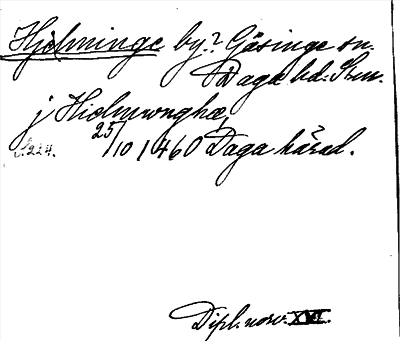 Hjelminge by? Gåsinge sn.
Daga hd. Söm.
j Hielmunghæ,
s. 224. 25/10 1460 Daga härad.
Dipl. norv. XVI.